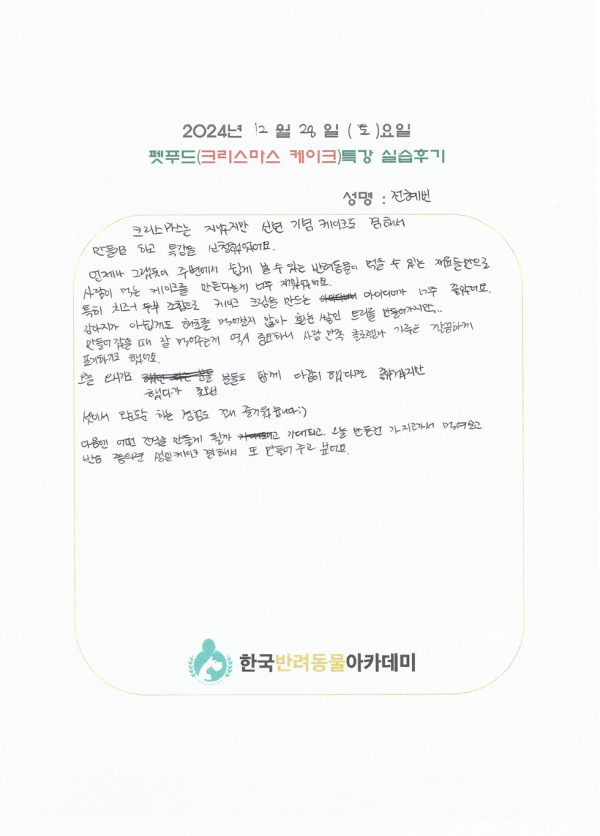 2024년 12월 28일 (토)요일
펫푸드(크리스마스 케이크)특강 실습후기
성명 : 전혜빈
크리스마스는 지났지만 신년 기념 케이크도 겸해서
만들려 하고 특강을 신청했었어요.
언제나 그랬듯이 주변에서 쉽게 볼 수 있는 반려동물이 먹을 수 있는 재료들만으로
사람이 먹는 케이크를 만든다는게 너무 재밌었어요.
특히 치즈나 두부 조합으로 케이크 크림을 만드는 아이디어가 너무 좋았어요.
강아지가 아쉽게도 해초를 먹어보지 않아 흰눈 쌓인 트리를 만들어가지만...
만들어 갔을 때 잘 먹어주는게 역시 중요하니 사람 만족 기준은 깔끔하게
포기하기로 했어요.
오늘 분들도 함께 다같이 했다면 좋았겠지만
했다가
셋이서 하는 경험도 꽤 즐거웠습니다:)
다음엔 어떤 간식을 만들게 될까 기대되고, 오늘 만든건 가지고가서 먹여보고
반응 좋으면 생일케이크 겸해서 또 만들어 주고 싶어요.
한국반려동물아카데미